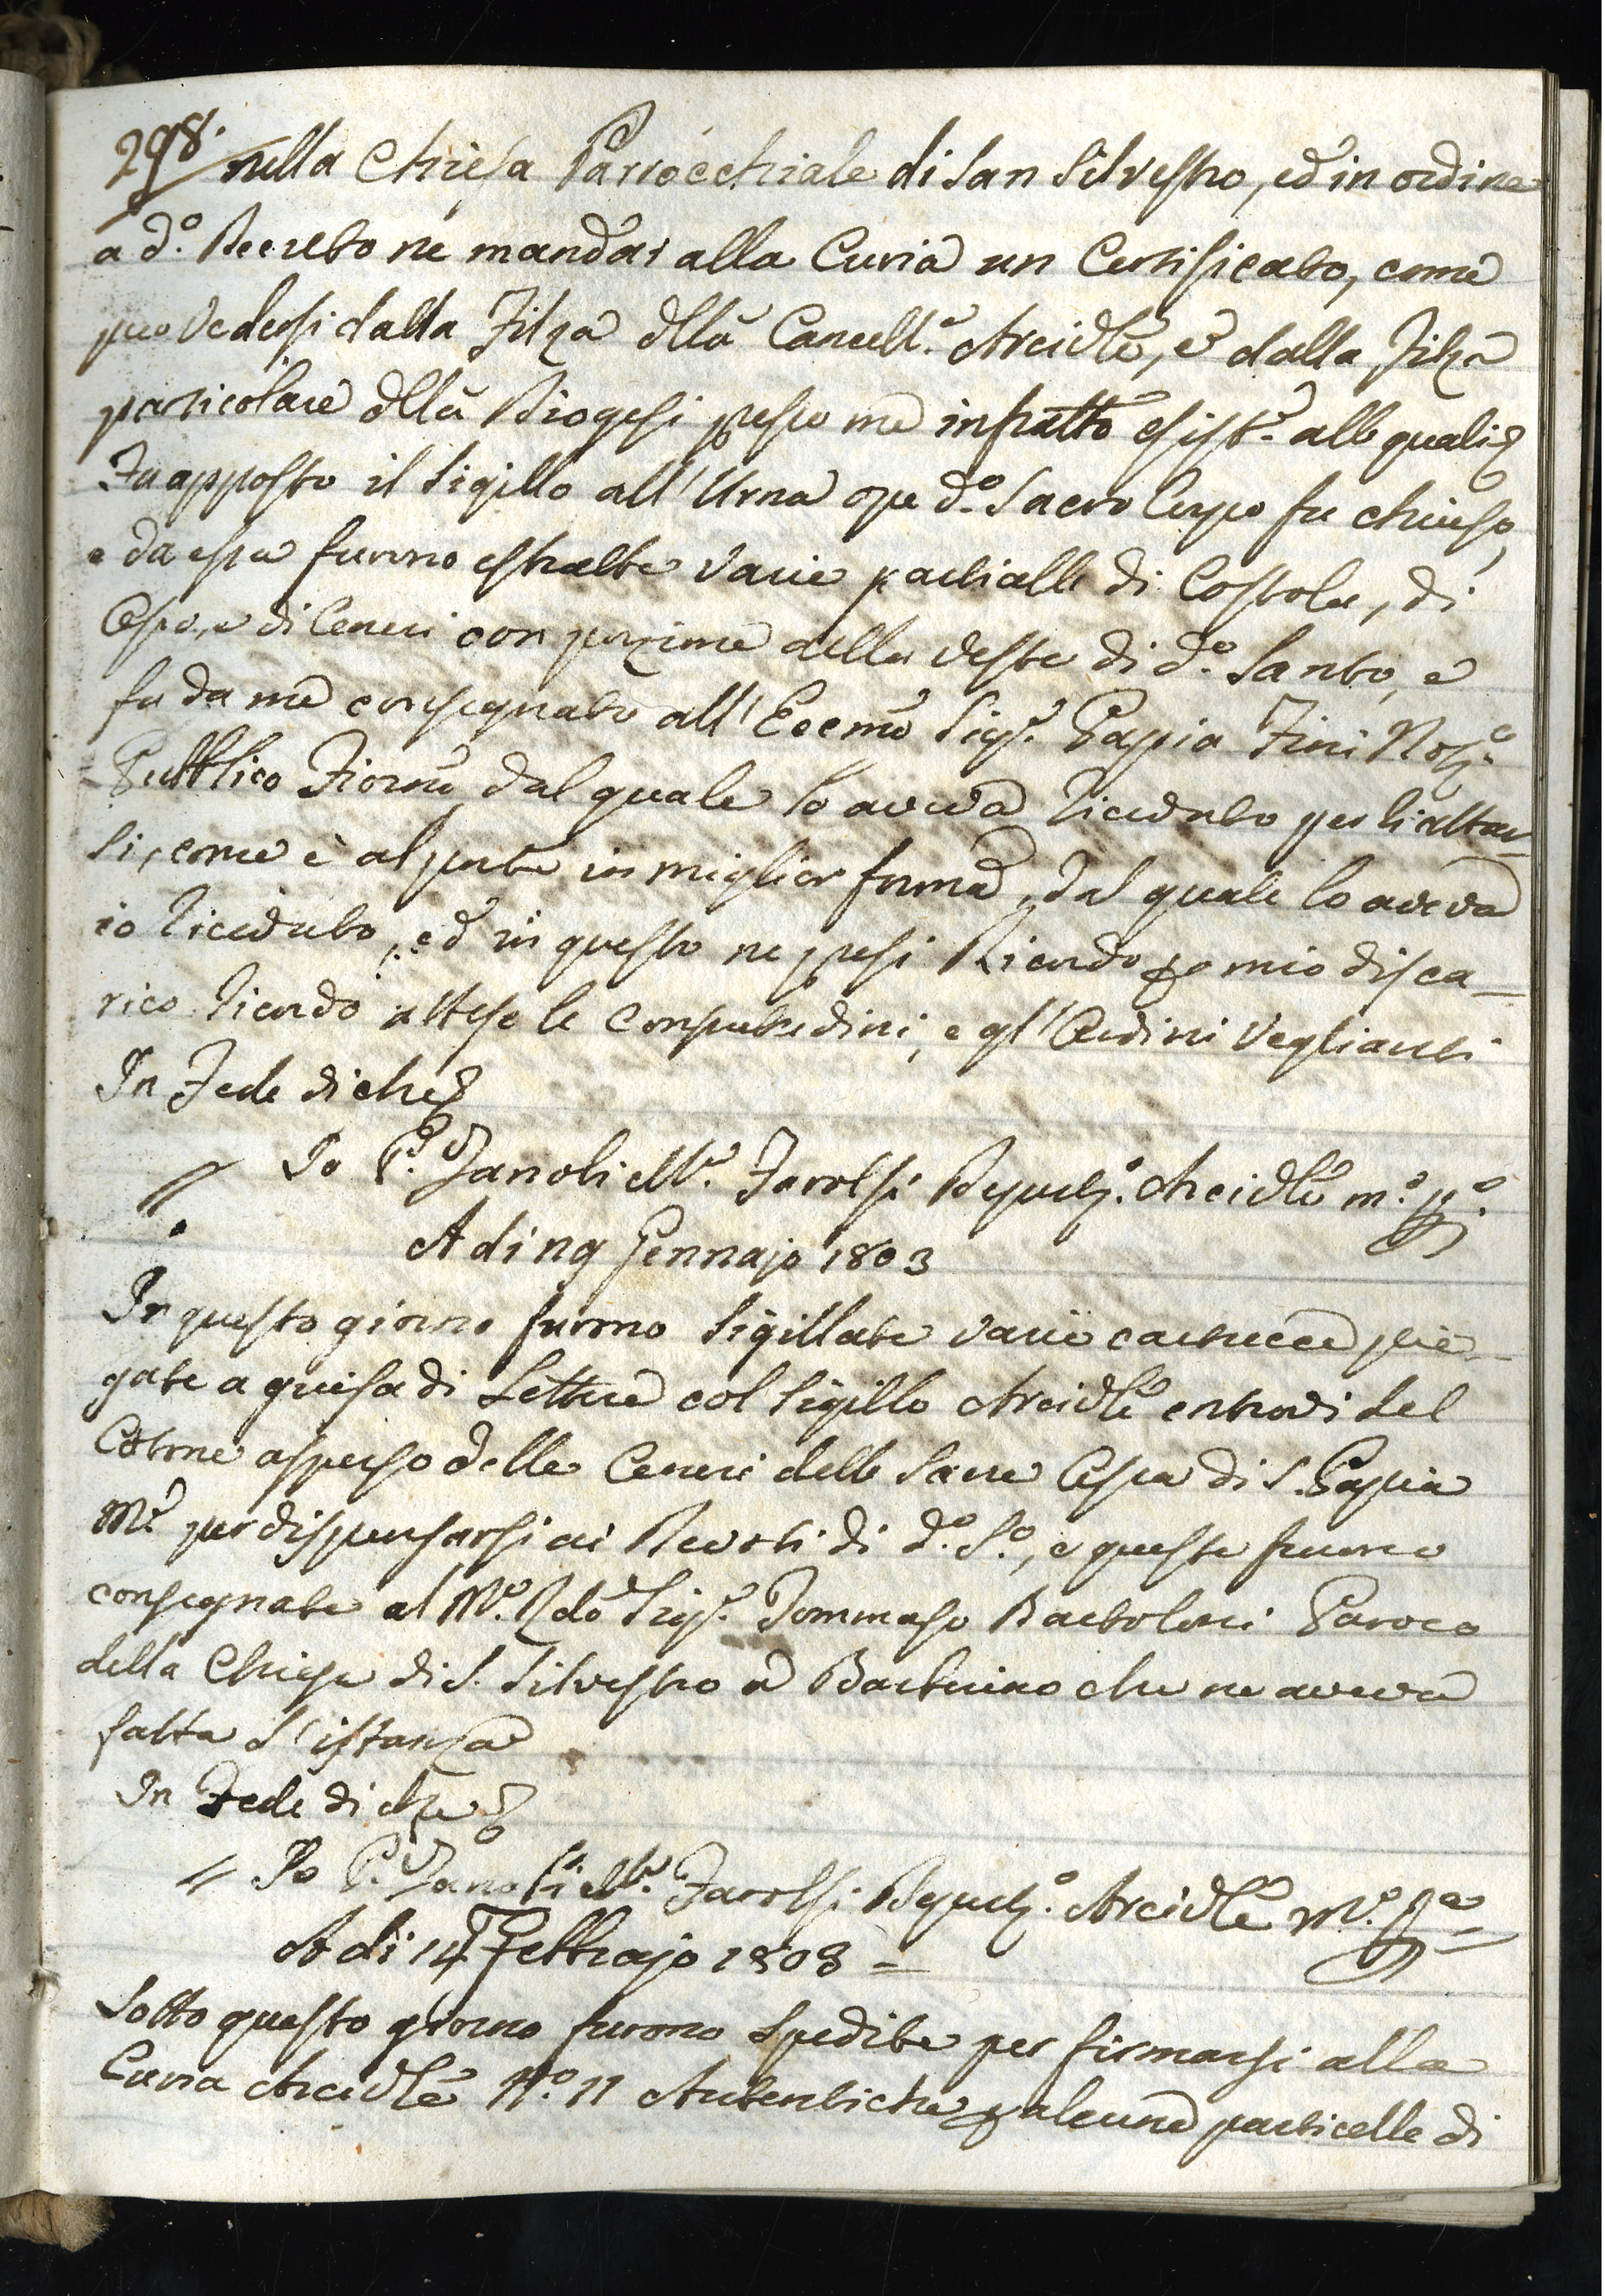 298.
nella Chiesa Parrocchiale di San Silvestro, ed in ordine
a d.o Decreto ne mandai alla Curia un Certificato, come
può vedersi dalla Filza dlla Cancell.a Arcidle, e dalla Filza
particolare dlla Diogesi presso me infratto esist.e alle quali
Fu apposto il Sigillo all'Urna ove d.o Sacro Corpo fu chiuso,
e da essa furono estratte varie particelle di Costole, di
Ossa, e di Ceneri con porzione della veste di d.o Santo, e
fu da me consegnato all'Eccmo Sig.r Papia Fini Not.o
Pubblico Fiorno, dal quale lo aveva ricevuto per li attau-
si, come è al parte in miglior forma, dal quale lo aveva
io ricevuto, ed in questo ne presi Ricordo p mio disca-
rico. Ricordo atteso le Consuetudini, e gl'Ordini Veglianti
In Fede di che
Io P.
A di 19 Gennajo 1803
In questo giorno furono Sigillate varie cartucce pie-
gate a guisa di Lettere col Sigillo Arcidle entrovi del
Cotone asperso delle Ceneri delle Sacre Ossa di S. Papia
M.e per dispensarsi ai Devoti di d.o S.o, e queste furono
consegnate al M.o Rdo Sig.r Tommaso Bartolini Paroco
della Chiesa di S. Silvestro a Barberino che ne aveva
fatta l'istanza
In Fede di che
Io P. Arcidle M.o
A di 14 Febbrajo 1803 =
Sotto questo giorno furono spedite per firmarsi alla
Curia Arcidle N.o 11 Autentiche p alcune particelle di